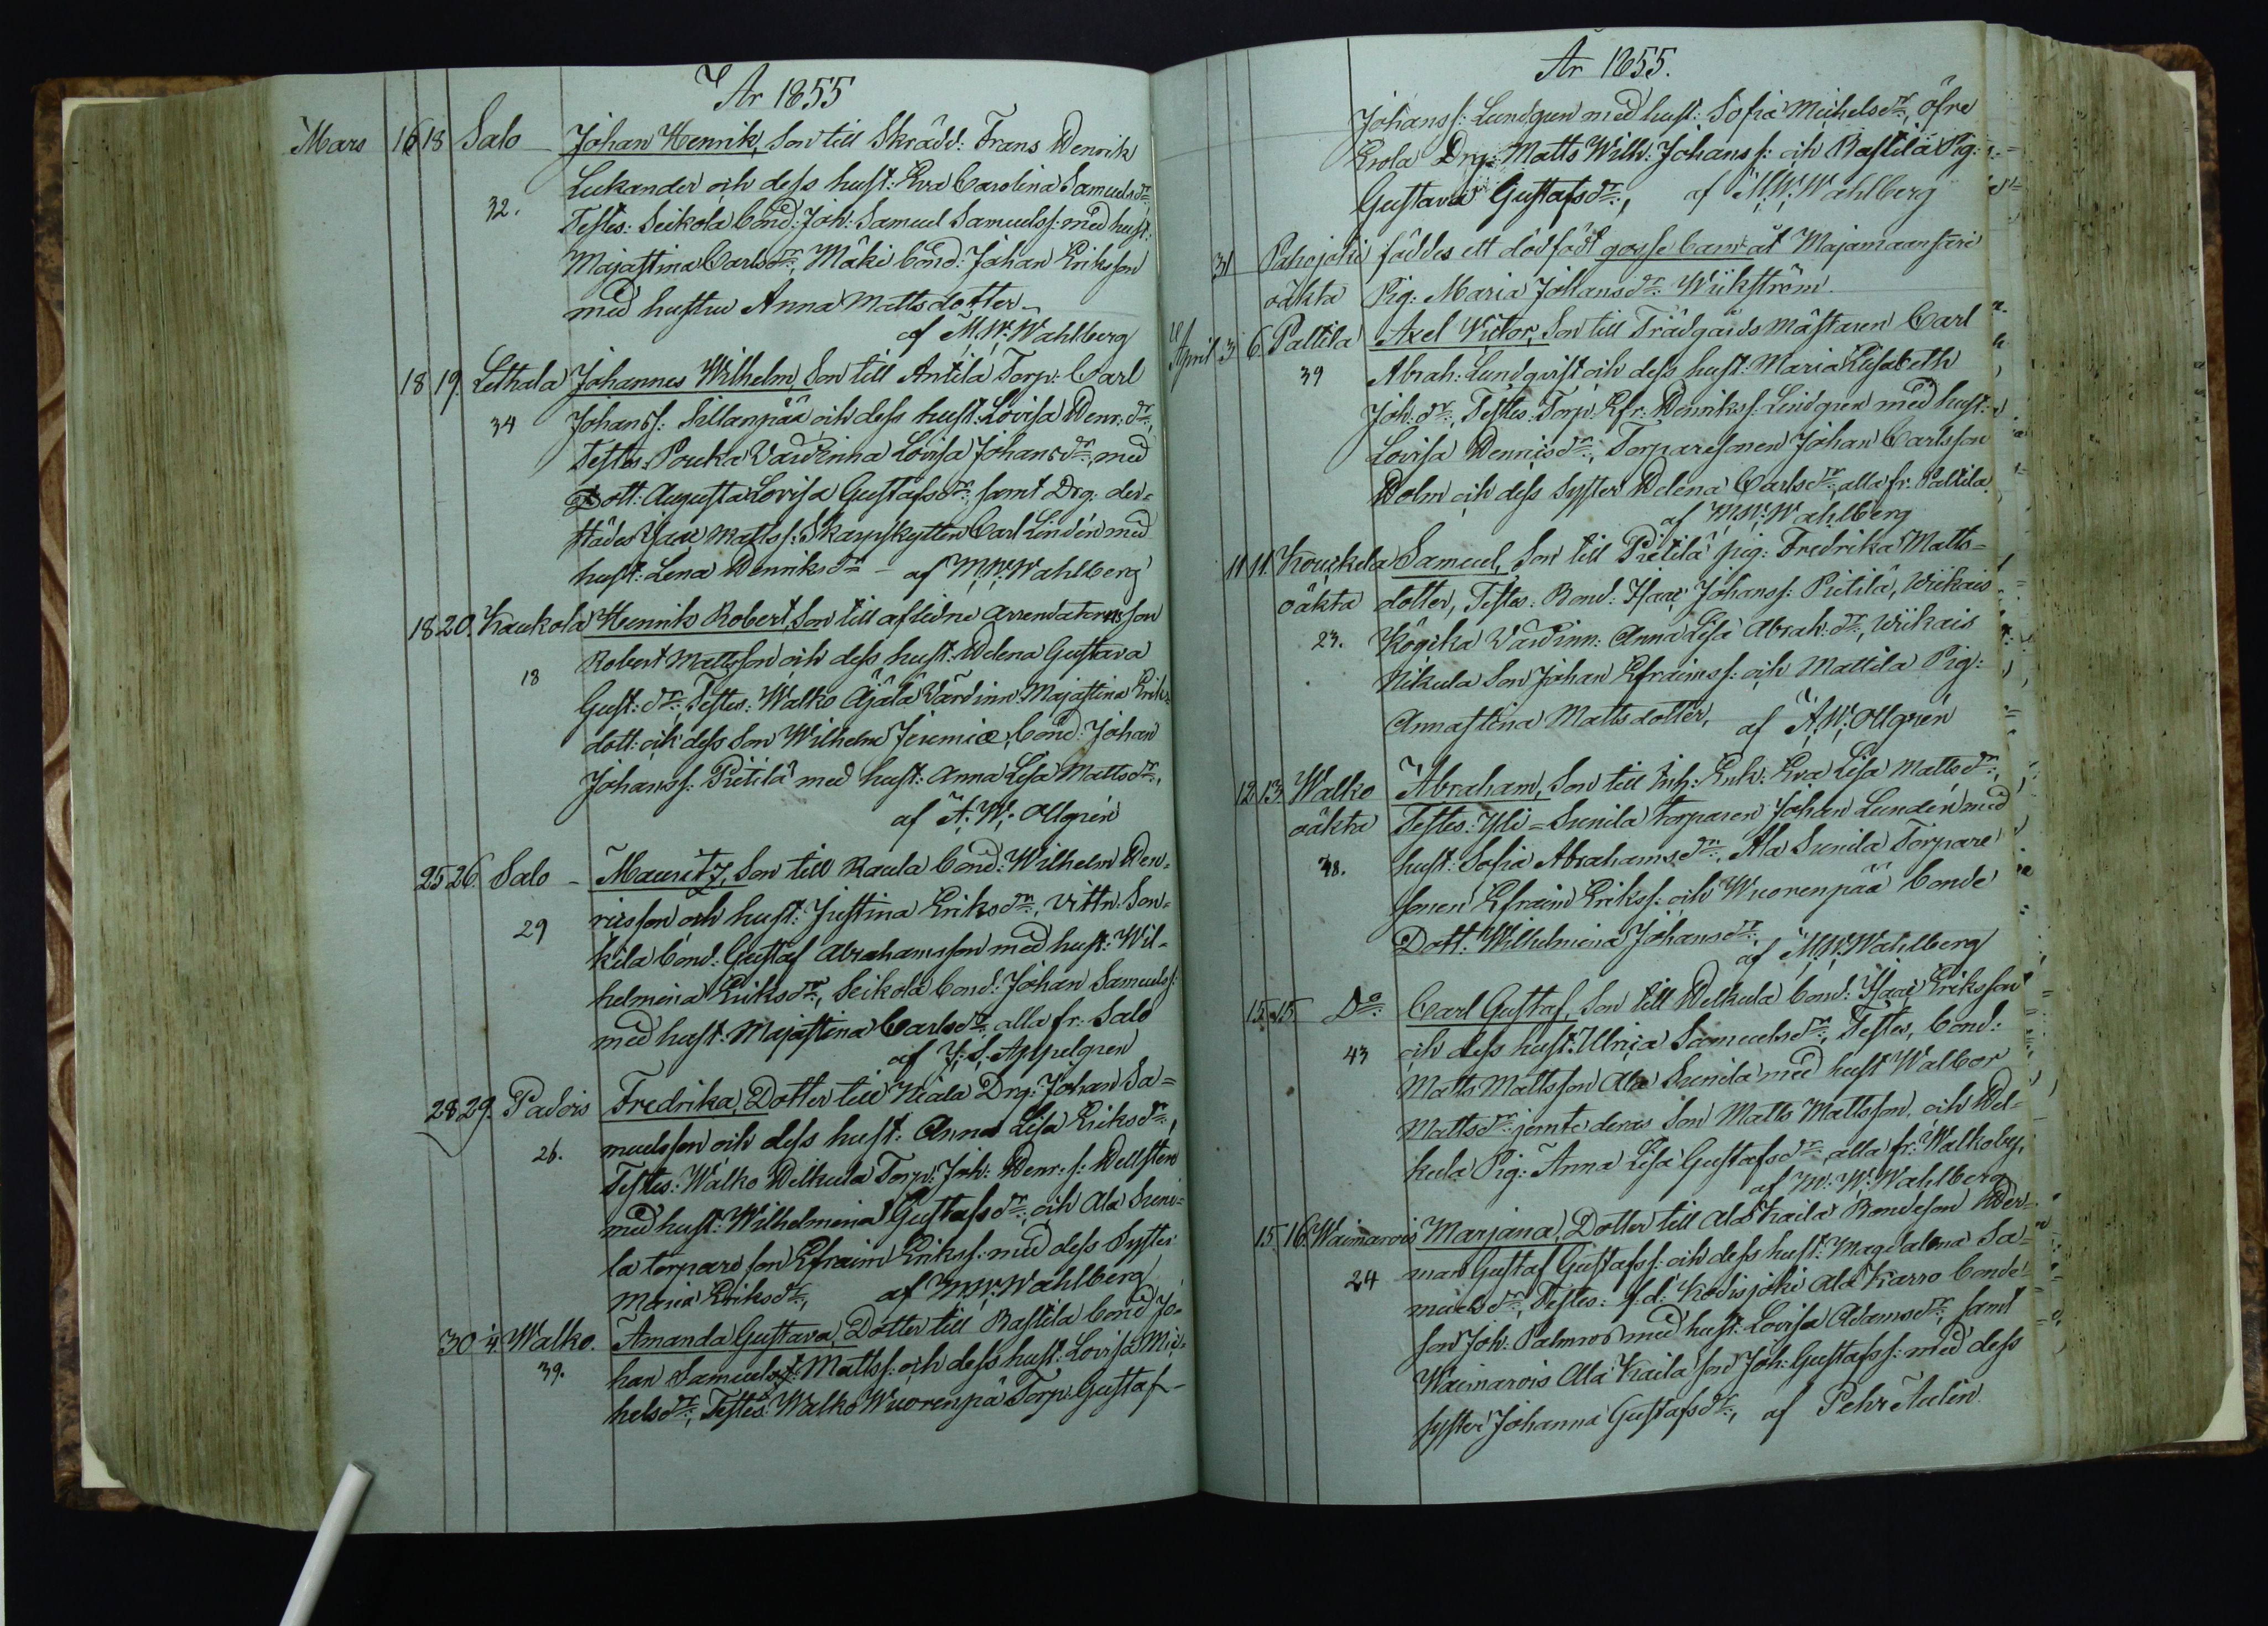 År 1855
Mars 16 18 Salo Johan Henrik, Son till Skrädd: Frans Henrik
Lukander och dess hust: Eva Carolina Samuelsdr:
32. Testes: Seikola bond: Joh: Samuel Samuelss: med hust:
Majastina Carlsdr:, Mäki bond: Johan Eriksson
med hustru Anna Mattsdotter
af M.W. Wahlberg
18 19. Lethala Johannes Wilhelm, Son till Antila Torp: Carl
34 Johanss: Sillanpää och dess hust: Lovisa Henr:dr:,
Testes: Pouka Värdinna Lovisa Johansdr:, med
Dott: Augusta Lovisa Gustafsdr: samt Drg: der-
städes Isac Mattss: Skarpskytten Carl Lindén med
hust: Lena Henriksdr: – af M.W. Wahlberg
18 20. Kaukola Henrik Robert, Son till aflidne arrendatorns son
Robert Mattsson och dess hust: Helena Gustava
18 Gust:dr: Testes: Walko Äjälä Värdinn: Majastina Eriks-
dott: och dess Son Wilhelm Jeremiæ, bond: Johan
Johanss: Pietilä med hust: Anna Lisa Mattsdr:,
af A.W. Ollgrén
25 26. Salo – Mauritz, Son till Raula bond: Wilhelm Hen-
ricsson och hust: Justina Eriksdr:, vittn: Son-
29 kila bond: Gustaf Abrahamsson med hust: Wil-
helmina Eriksdr:, Seikola bond: Johan Samuelss:
med hust: Majastina Carlsdr: alla fr: Salo
af J.S. Appelgren
28 29. Padois Fredrika, Dotter till Niala Drg: Johan Sa-
26. muelsson och dess hust: Anna Lisa Eriksdr:,
Testes: Walko Helkula Torp: Joh: Henr:s: Hellsten
med hust: Wilhelmina Gustafsdr:, och Ala Suni-
la torpare son Efraim Erikss: med dess Syster
Maria Eriksdr:, af M.W. Wahlberg
30 1/4 Walko. Amanda Gustava, Dotter till Rastila bond: Jo-
39. han Samuel Mattss: och dess hust: Lovisa Mic-
helsdr:, Testes: Walko Wuorenpä Torp: Gustaf
År 1855.
Johanss: Lundgren med hust: Sofia Michelsdr:, öfre
Erola Drg: Matts Wilh: Johanss: och Rastila Pig:
Gustava Gustafsdr:, af M.W. Wahlberg
31 Pahojoki föddes ett dödfödt gosse barn åt Majamaansäri
oäkta Pig: Maria Johansdr: Wiikström.
April 3 6. Paltila Axel Victor, Son till Trädgårds Mästaren Carl
39 Abrah: Lundqvist och dess hust: Maria Elisabeth
Joh:dr:, Testes: Torp: Efr: Henrikss: Lindgren med hust:
Lovisa Hennisdr:, Torparesonen Johan Carlsson
Holm och dess Syster Helena Carlsdr:, alla fr: Paltila.
af M.W. Wahlberg
11 11. Kouckela Samuel, Son till Pietilä pig: Fredrika Matts-
oäkta dotter, Testes: Bond: Isac Johanss: Pietilä, Wiikais
23. Kögcka Värdinn: Anna Lisa Abrah:dr:, Wiikais
Nikula Son Johan Efraimss: och Mattila Pig:
Annastina Mattsdotter, af A.W. Ollgrén
12 13. Walko Abraham, Son till Inh: Enk: Eva Lisa Mattsdr:,
oäkta Testes: Yli-Sunila torparen Johan Lundén med
38. hust: Sofia Abrahamsdr:, Ala Sunila Torpare
sonen Efraim Erikss: och Wuorenpää bonde
Dott: Wilhelmina Johansdr:
af M.W. Wahlberg
15 15. Do: Carl Gustaf, Son till Helkula bond: Isaac Eriksson
43 och dess hust: Ulrica Samuelsdr:, Testes, bond:
Matts Mattsson Ala Sunila med hust Walbor
Mattsdr: jemte deras Son Matts Mattsson, och Hel-
kula Pig: Anna Lisa Gustafsdr: alla fr: Walkoby,
af M.W. Wahlberg
15 16. Waimarois Marjana, Dotter till Ala Kaila Bondeson Her-
24 man Gustaf Gustafss: och dess hust: Magdalena Sa-
muelsdr:, Testes: f.d: Kodisjoki Ala Karro bonde
son Joh: Palmros med hust: Lovisa Adamsdr:, samt
Waimarois Ala Kaila son Joh: Gustafss: med dess
syster Johanna Gustafsdr:, af Pehr Aulin.